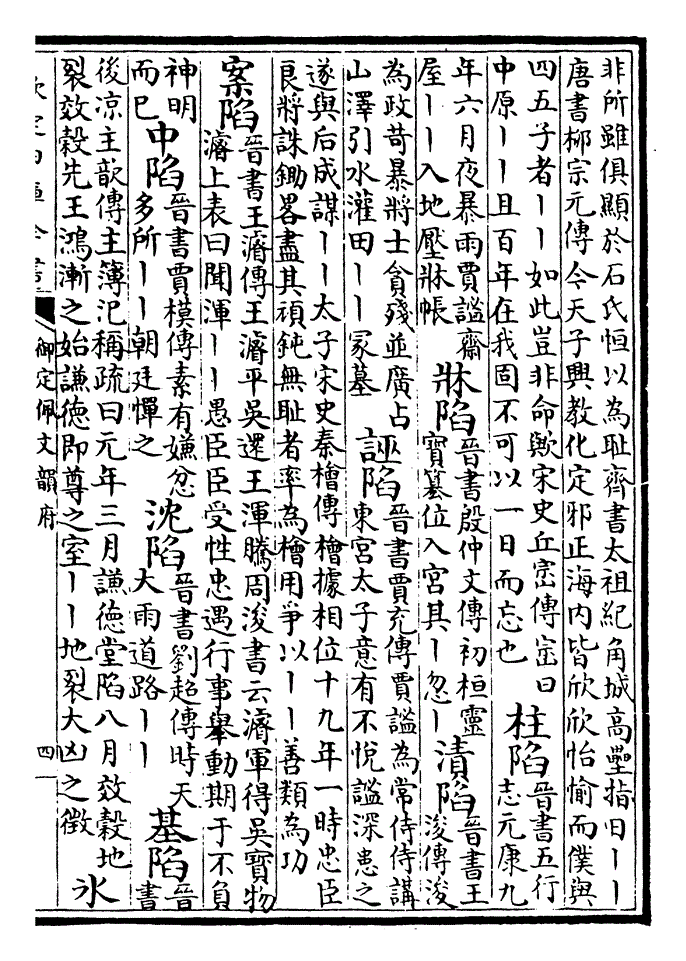 非所雖俱顯於石氏恒以為耻齊書太祖紀角城高壘指日丨丨
唐書柳宗元傳今天子興教化定邪正海內皆欣欣怡愉而僕與
四五子者丨丨如此豈非命歟宋史丘崈傳崈曰
中原丨丨且百年在我固不可以一日而忘也
柱陷
晉書五行
志元康九
年六月夜暴雨賈謐齋
屋丨丨入地壓牀帳
牀陷
晉書殷仲文傳初桓靈
寶簒位入宮其丨忽丨
漬陷
晉書王
浚傳浚
為政苛暴將士貪殘並廣占
山澤引水灌田丨丨冢墓
誣陷
晉書賈充傳賈謐為常侍侍講
東宮太子意有不悅謐深患之
遂與后成謀丨丨太子宋史秦檜傳檜據相位十九年一時忠臣
良將誅鋤畧盡其頑鈍無耻者率為檜用爭以丨丨善類為功
案陷
晉書王濬傳王濬平吳還王渾騰周浚書云濬軍得吳寳物
濬上表曰聞渾丨丨愚臣臣受性忠遇行事舉動期于不負
神明
而已
中陷
晉書賈模傳素有嫌忿
多所丨丨朝廷憚之
沈陷
晉書劉超傳時天
大雨道路丨丨
基陷
晉
書
後涼主歆傳主簿氾稱疏曰元年三月謙德堂陷八月效穀地
裂效穀先王鴻漸之始謙德即尊之室丨丨地裂大凶之徵
氷
欽定四庫全書
御定佩文韻府
四